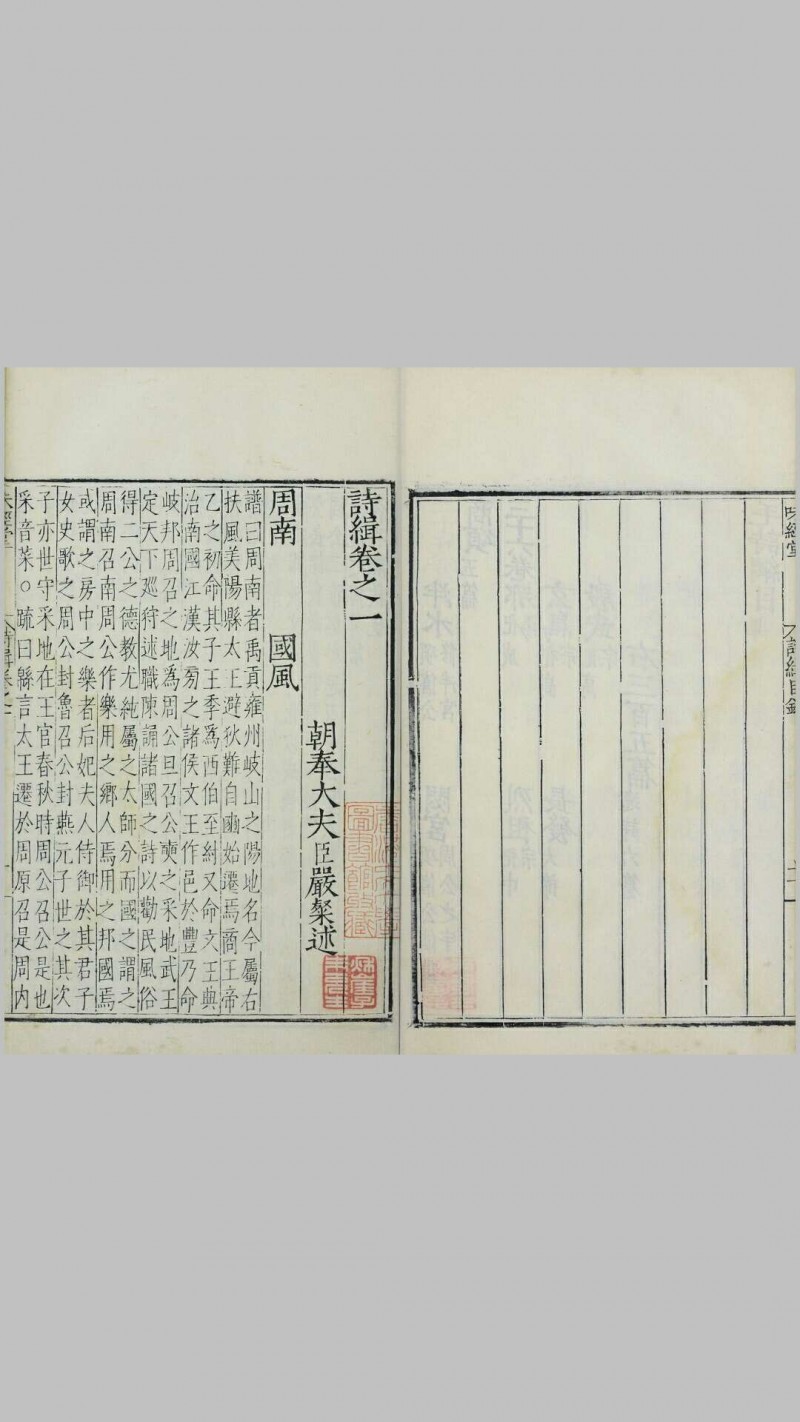 味經堂
詩經目錄
詩緝卷之一
朝奉大夫臣嚴粲述
周南 國風
譜曰周南者禹貢雍州岐山之陽地名今屬右
扶風美陽縣太王避狄難自豳始遷焉商王帝
乙之初命其子王季爲西伯至紂又命文王典
治南國江漢汝旁之諸侯文王作邑於豐乃命
岐邦周召之地為周公旦召公奭之采地武王
定天下廵狩述職陳誦諸國之詩以勸民風俗
得二公之德教尤純屬之太師分而國之謂之
周南召南周公作樂用之鄉人焉用之邦國焉
或謂之房中之樂者后妃夫人侍御於其君子
女史歌之周公封魯召公封燕元子世之其次
子亦世守采地在王官春秋時周公召公是也
采音菜○疏曰緜言太王遷於周原召是周內